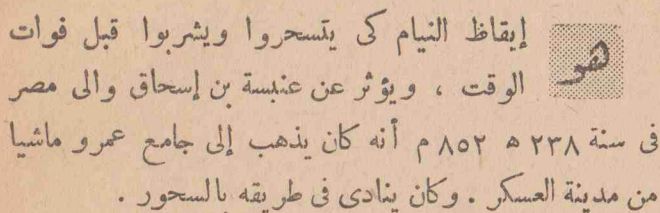 هو إيقاظ النيام كى يتسحروا ويشربوا قبل فوات
الوقت ، ويؤثر عن عنبسة بن إسحاق والى مصر
فى سنة ٢٣٨ ه ٨٥٢ م أنه كان يذهب إلى جامع عمرو ماشيا
من مدينة العسكر . وكان ينادى فى طريقه بالسحور .